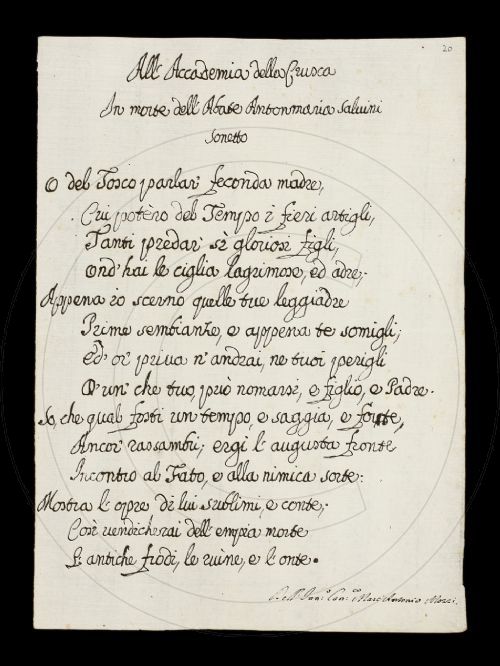 20
All' Accademia della Crusca
In morte dell' Abate Antonmaria Salvini
Sonetto
O del Tosco parlar feconda madre,
Cui potero del Tempo i fieri artigli,
Tanti predar sì gloriosi figli,
Ond' hai le ciglia lagrimose, ed adre;
Appena io scerno quelle tue leggiadre
Prime sembianze, e appena te somigli;
Ed or priva n' andrai, ne tuoi perigli
D' un' che tuo, può nomarsi, e figlio, e Padre.
So, che qual fosti un tempo, e saggia, e forte,
Ancor rassembri; ergi l' augusta fronte
Incontro al Fato, e alla nimica sorte:
Mostra l' opre di lui sublimi, e conte;
Così vendicherai dell' empia morte
L' antiche frodi, le ruine, e l' onte.
Dell' Can.co Marc' Antonio Mozzi.